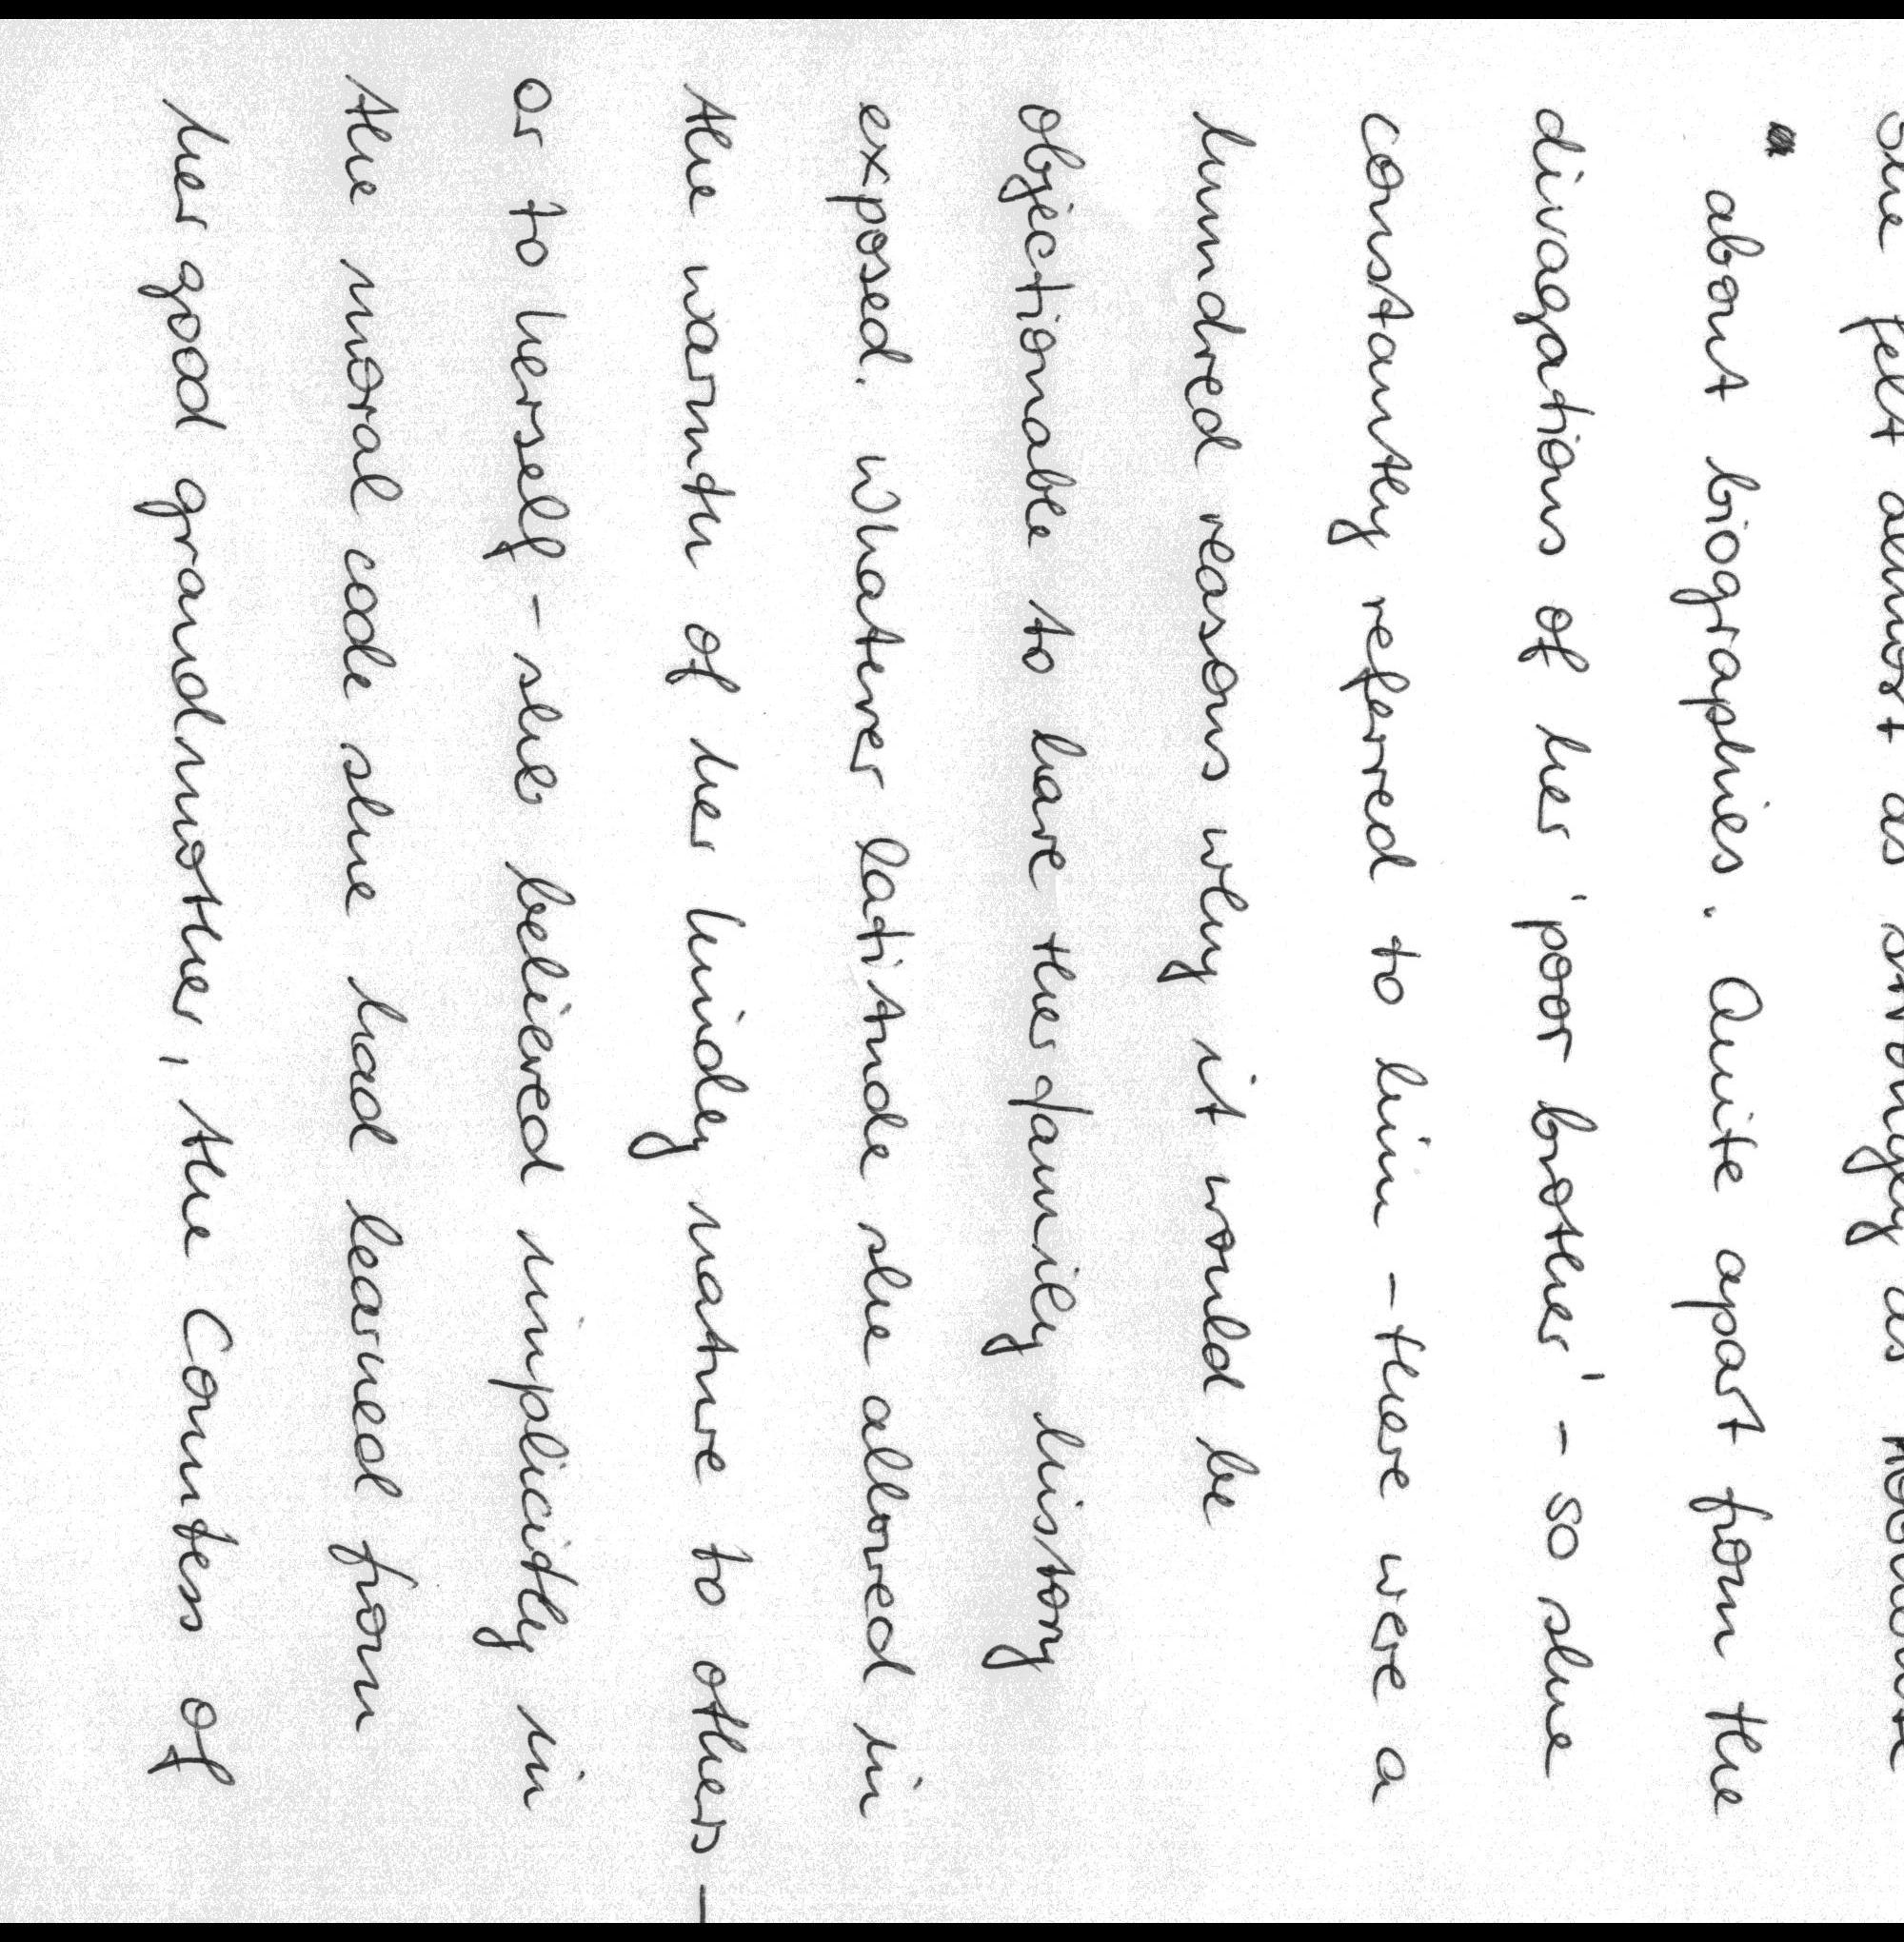 She felt almost as strongly as
about biographies. Quite apart from the
divagations of her 'poor brother' - so she
constantly referred to him - there were a
hundred reasons why it would be
objectionable to have their family history
exposed. Whatever latitude she allowed in
the warmth of her kindly nature to others -
or to herself - she believed implicitly in
the moral code she had learned from
her good grandmother, the Countess of